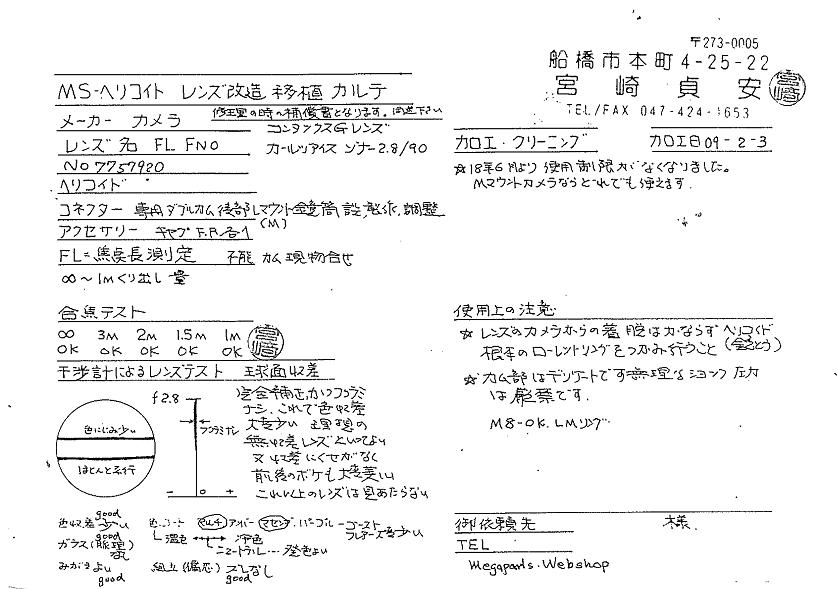 〒273-0005
船橋市本町4-25-22
宮崎貞安
TEL/FAX 047-424-1653
MS-ヘリコイト レンズ改造 移植 カルテ
修理の時の補償書となります。
メーカー カメラ コンタックスG レンズ
レンズ名 FL FNO カールツアイス ゾナー2.8/90
No 7757920
ヘリコイド
コネクター 専用ダブルカム後部Lマウント鏡筒設計製作.調整
(M)
アクセサリー キャプ F.R.各1
FL=焦点長測定 不能 カム現物合せ
∞~1Mくり出し量
カロエ・クリーニング カロエ日09-2-3
☆18年6月より使用制限がなくなりました。
Mマウントカメラならどれでも使えます.
合焦テスト
∞ 3M 2M 1.5M 1M
OK OK OK OK OK
宮崎
干渉計によるレンズテスト 球面収差
色にじみ少い
ほとんど平行
f2.8
フラミナシ
- 0 +
完全補正,かつフラミ
ナシ、これで色収差
大変少い 理想の
無収差レンズといってよい
又収差にくせがなく
前後のボケも大変美い
これ以上のレンズは見あたらない
使用上の注意
☆レンズのカメラからの着脱はかならずヘリコイド
根本のローレットリングをつかみ行うこと
☆カム部はデリケートです無理なショック圧力
は厳禁です.
M8-OK. LMリング
good
色収差 少い
good
ガラス(脈理)なし
みがきよい
good
色コート マルチ アンバー マゼンダ.パープル
ゴースト
フレアーズ少い
温色 冷色
ニュートラル… 発色よい
組立(偏芯)ズレなし
good
御依頼先 様
TEL
Megaparts.Webshop